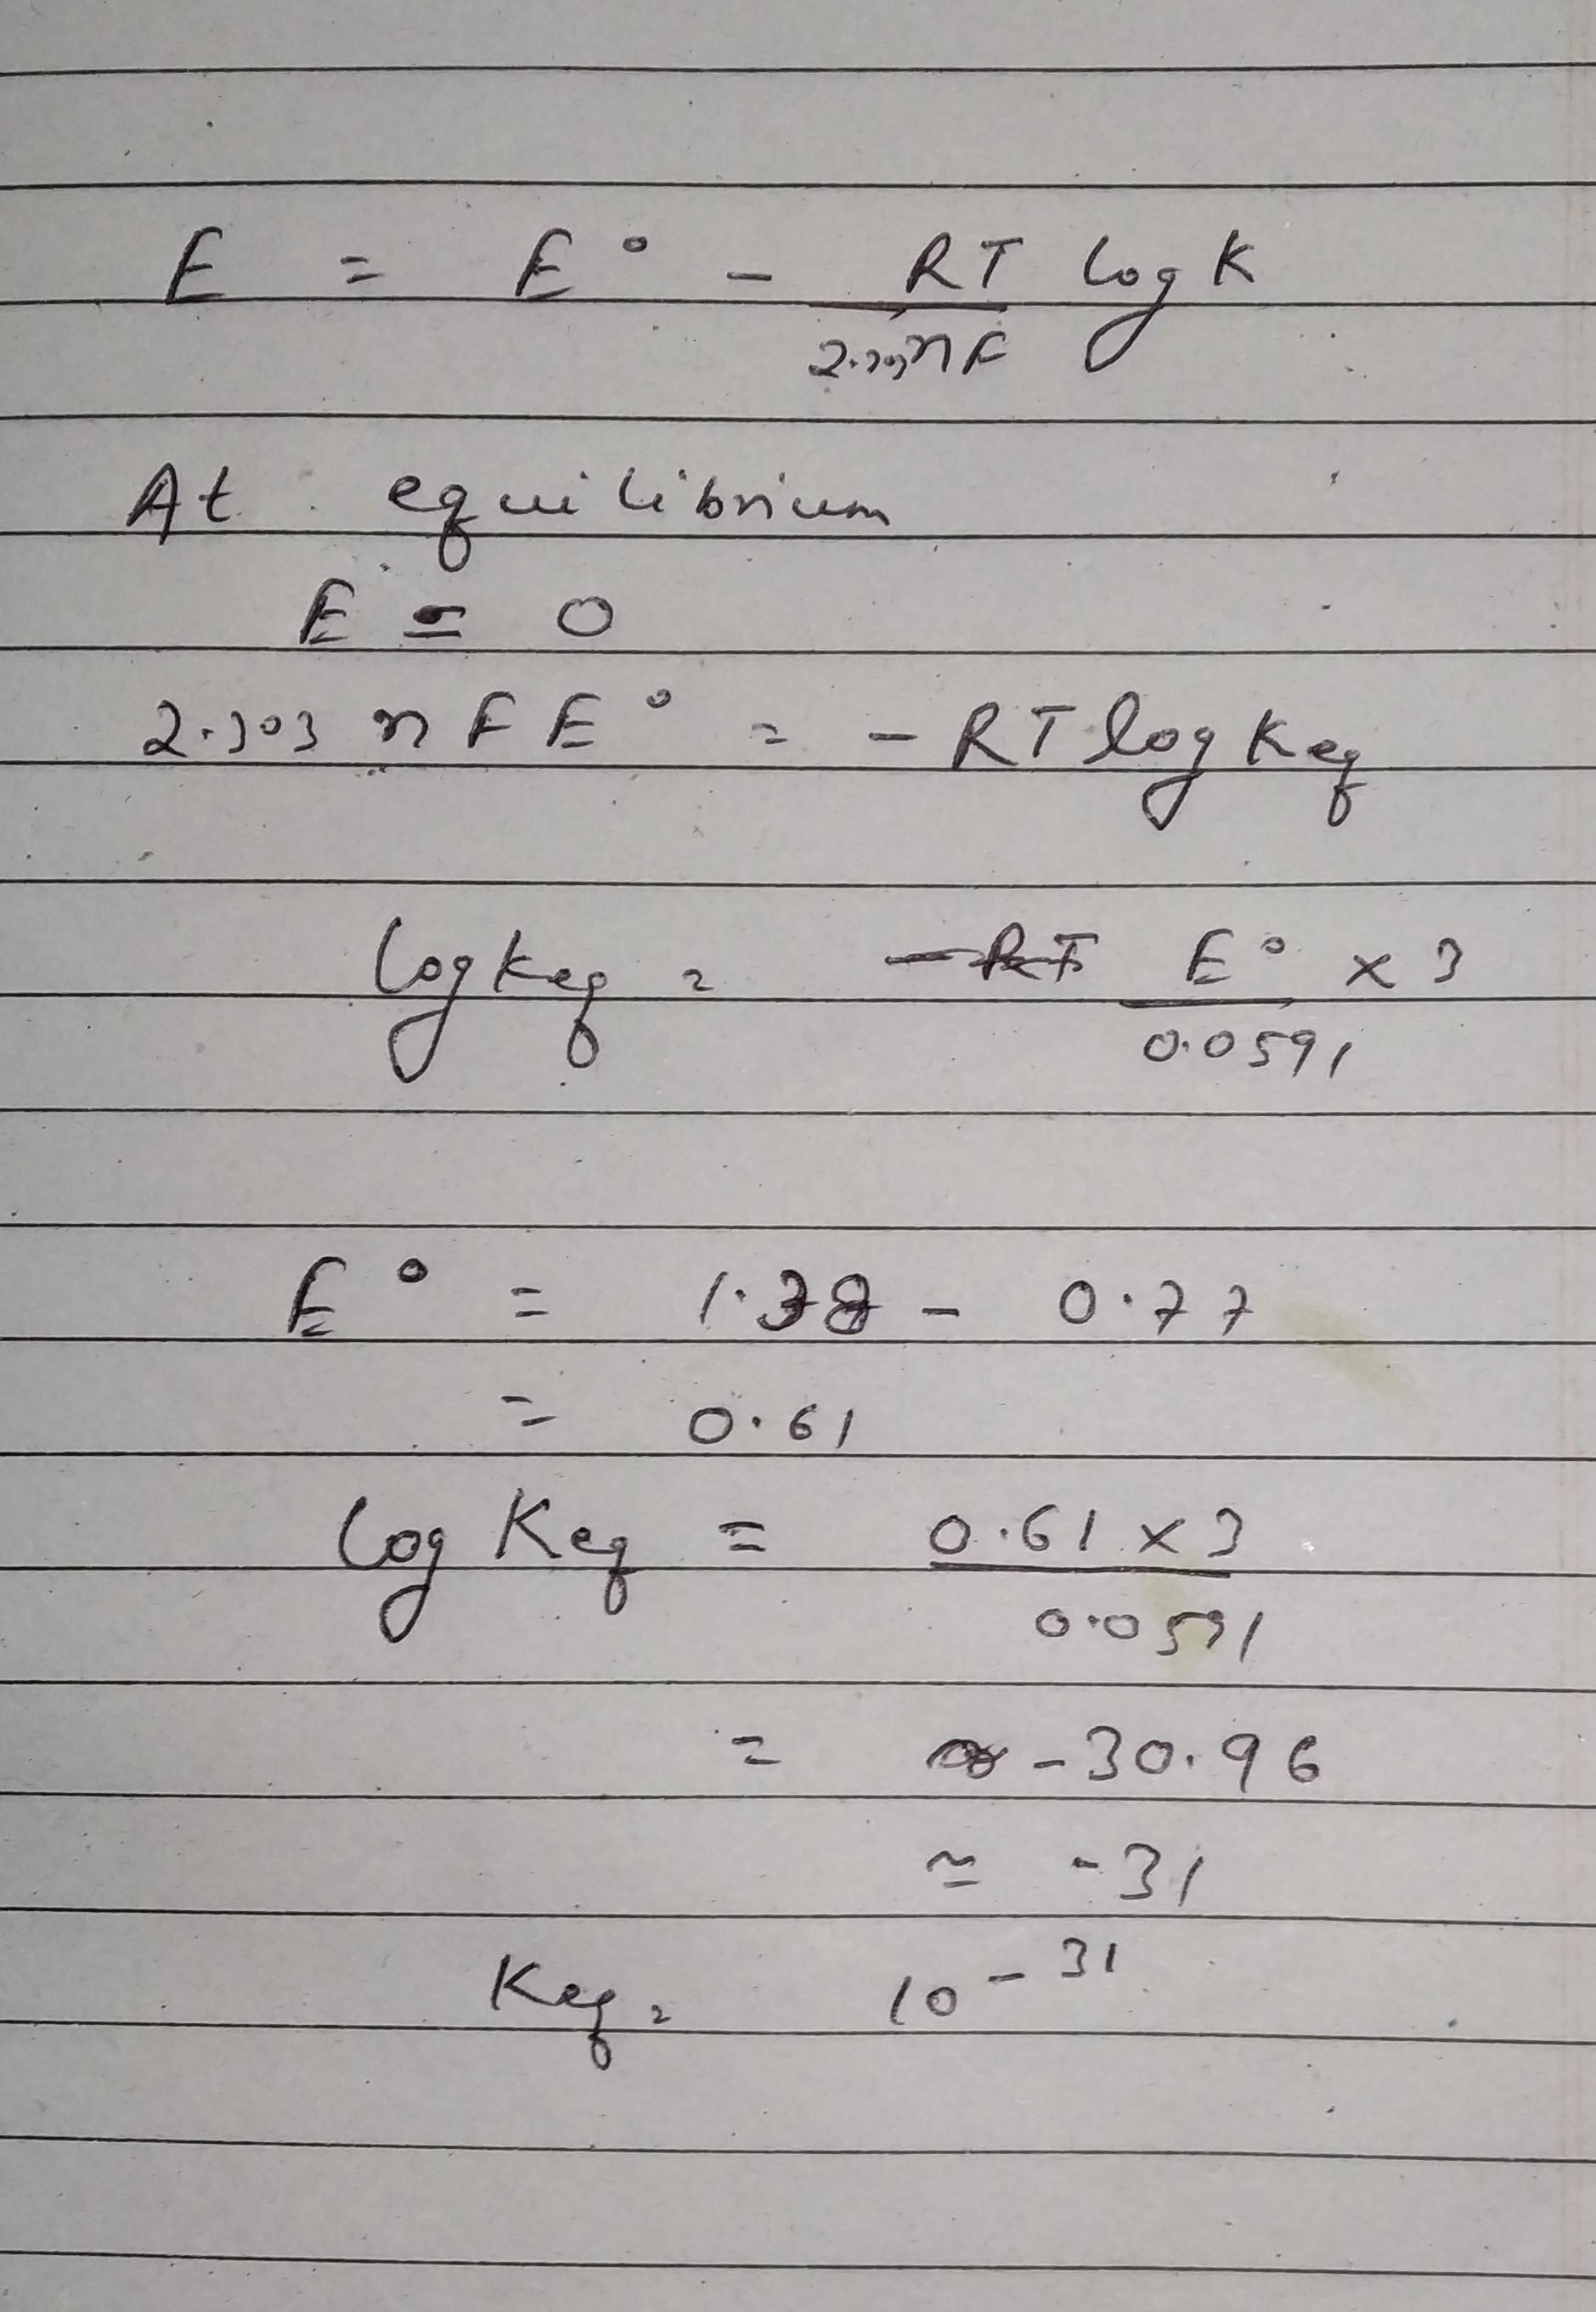 E = E° - RT log K
2.303nF
At equilibrium
E = 0
2.303 n F E° = - RT log Keq
log Keq = E° x 3
0.0591
E° = 1.38 - 0.77
= 0.61
log Keq = 0.61 x 3
0.0591
= -30.96
≃ -31
Keq = 10^-31